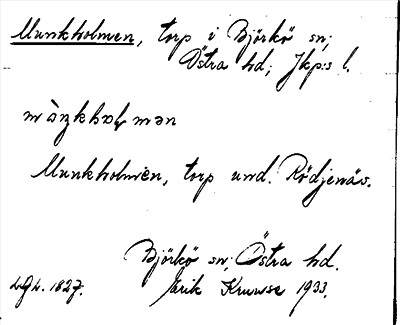 Munkholmen, torp i Björkö sn;
Östra hd; Jkp:s l.
Munkholmen, torp und. Rödjenäs.
Björkö sn; Östra hd.
1827. Erik Kruuse 1933.